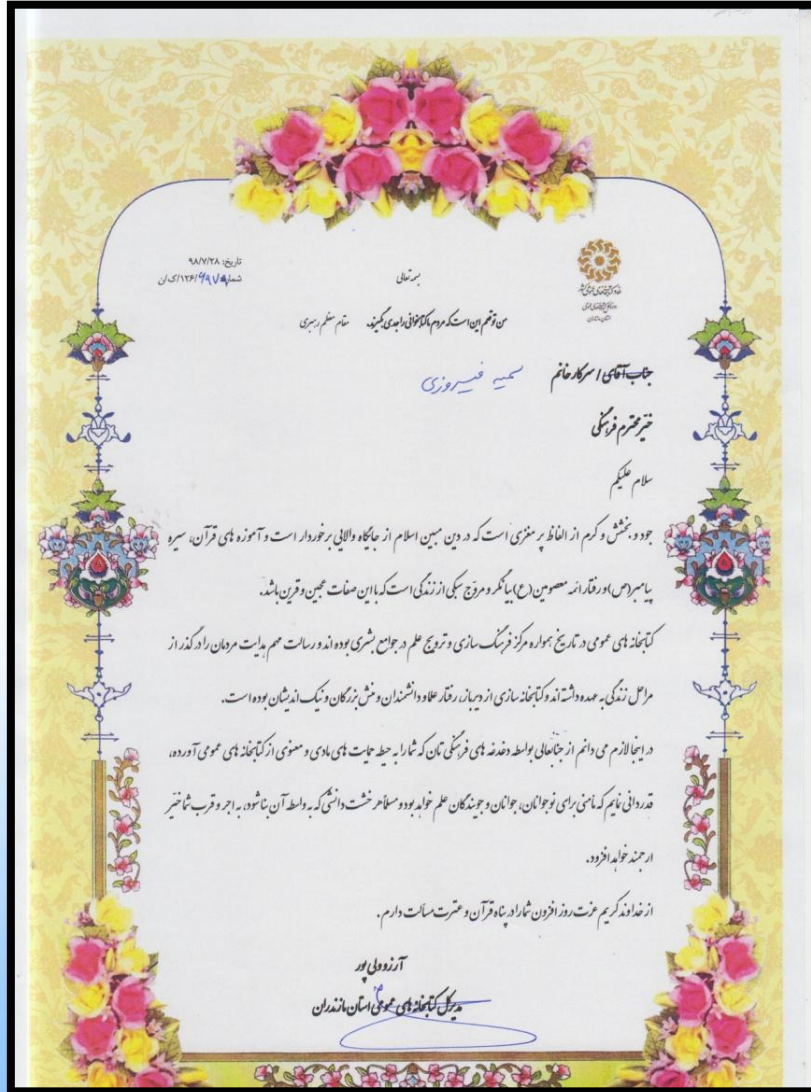 تاریخ: ۹۸/۷/۲۸
بسمه تعالی
من توقعم این است که مردم ما کتابخوانی را جدی بگیرند. مقام معظم رهبری
جناب آقای / سرکار خانم سمیه فیروزی
خیّر محترم فرهنگی
سلام علیکم
جود و بخشش و کرم از الفاظ پر مغزی است که در دین مبین اسلام از جایگاه والایی برخوردار است و آموزه های قرآن، سیره
پیامبر(ص) و رفتار ائمه معصومین(ع) بیانگر و مروّج سبکی از زندگی است که با این صفات عجین و قرین باشد.
کتابخانه های عمومی در تاریخ همواره مرکز فرهنگ سازی و ترویج علم در جوامع بشری بوده اند و رسالت مهم هدایت مردمان را در گذر از
مراحل زندگی به عهده داشته اند و کتابخانه سازی از دیرباز، رفتار علما و دانشمندان و منش بزرگان و نیک اندیشان بوده است.
در اینجا لازم می دانم از جنابعالی بواسطه دغدغه های فرهنگی تان که شما را به حیطه حمایت های مادی و معنوی از کتابخانه های عمومی آورده،
قدردانی نمایم که مأمنی برای نوجوانان، جوانان و جویندگان علم خواهد بود و مسلماً هر خشت دانشی که به واسطه آن بنا شود، به اجر و قرب شما خیّر
ارجمند خواهد افزود.
از خداوند کریم عزت روز افزون شما را در پناه قرآن و عترت مسألت دارم.
آرزو ولی پور
مدیرکل کتابخانه های عمومی استان مازندران